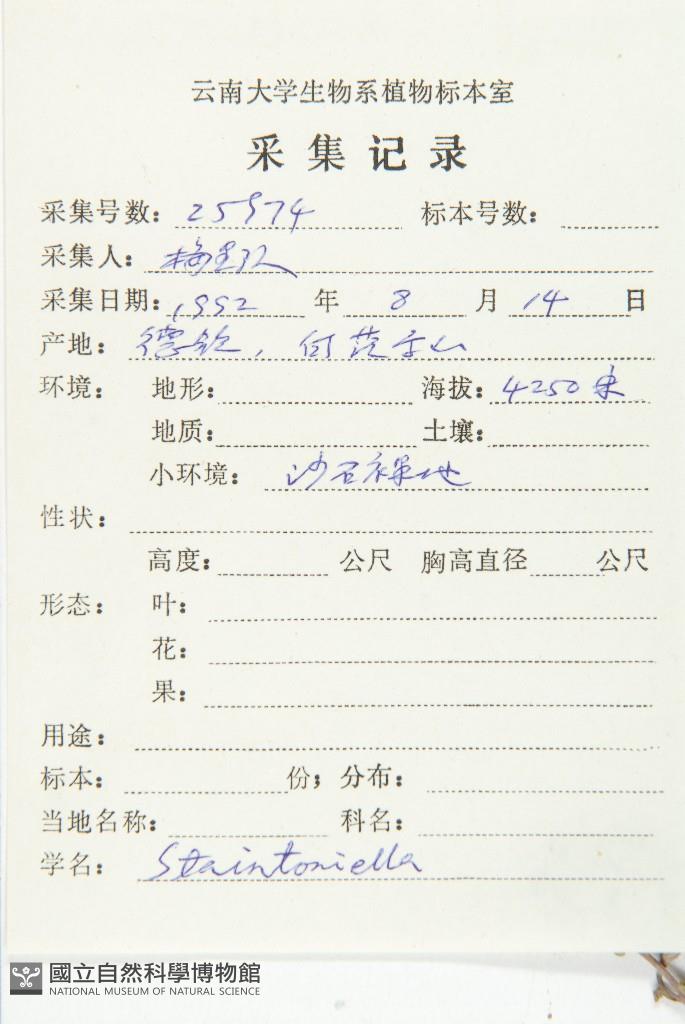 云南大学生物系植物标本室
采集记录
采集号数： 25974 标本号数：
采集人： 梅里队
采集日期： 1992 年 8 月 14 日
产地： 德钦，
环境： 地形： 海拔： 4250米
地质： 土壤：
小环境： 沙石裸地
性状：
高度： 公尺 胸高直径 公尺
形态： 叶：
花：
果：
用途：
标本： 份； 分布：
当地名称： 科名：
学名： Staintoniella
國立自然科學博物館
NATIONAL MUSEUM OF NATURAL SCIENCE